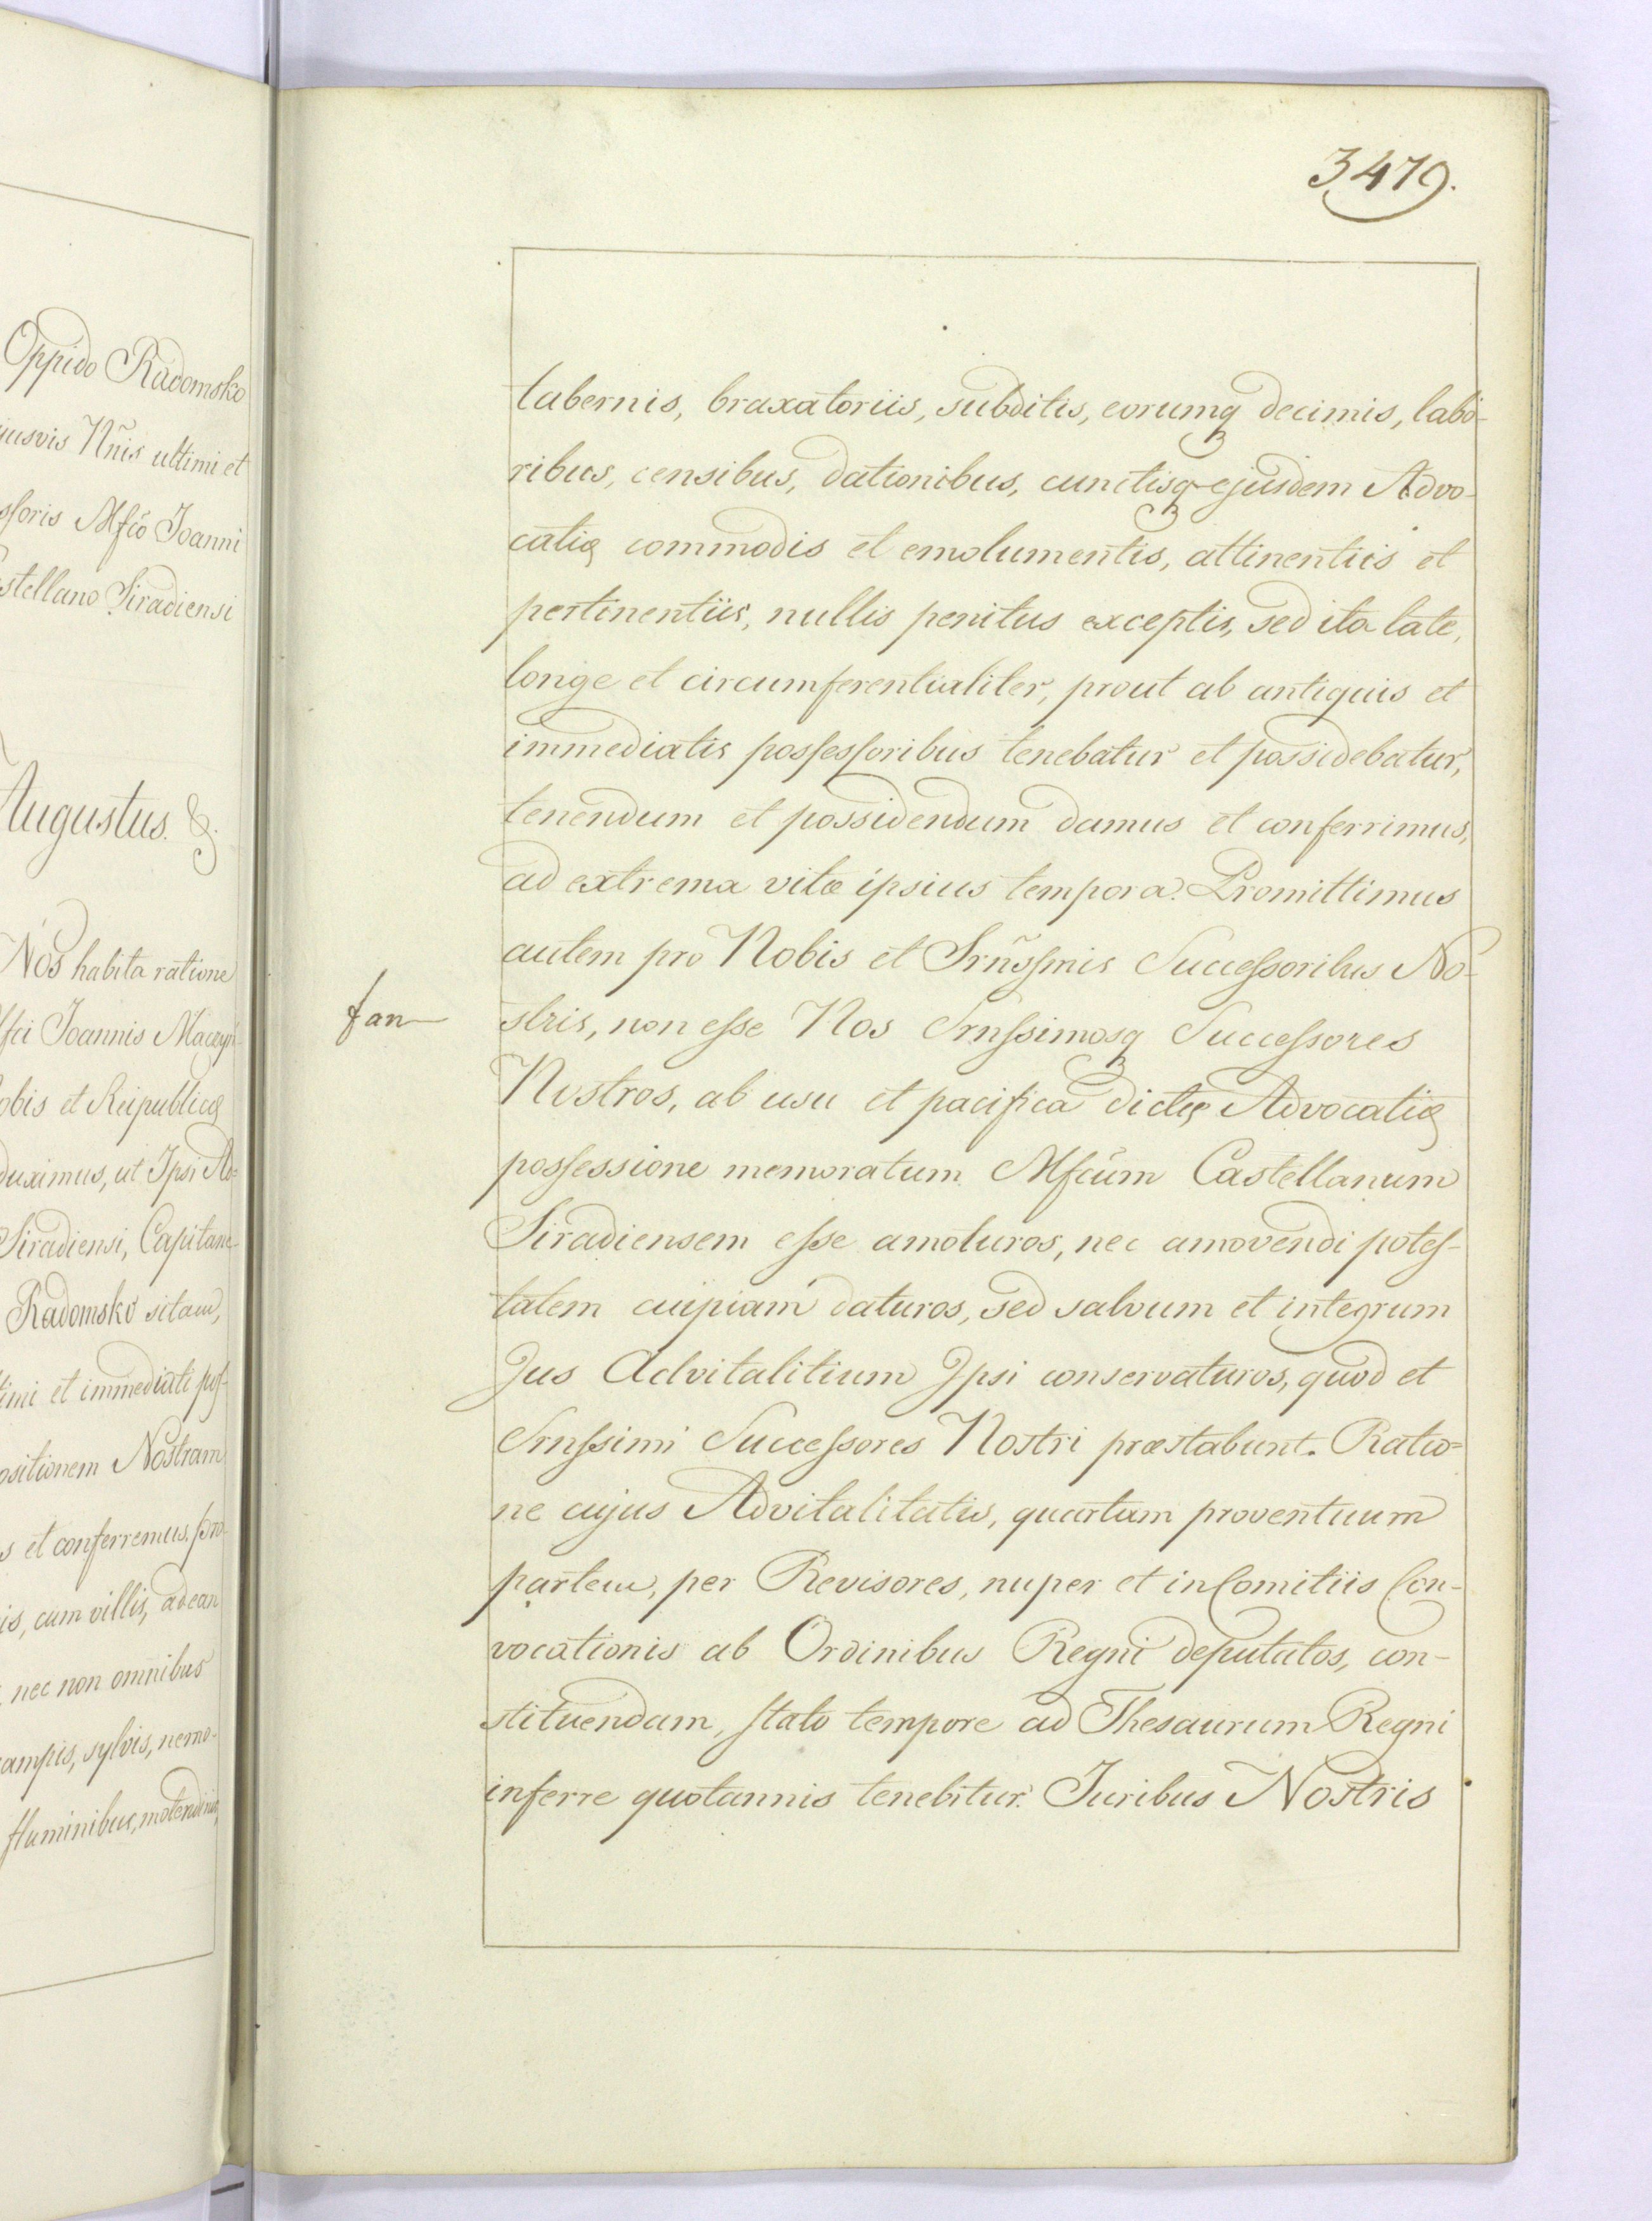 Oppido Radomsko
jusvis Nñis ultimi et
ssoris Mfcô Joanni
stellano Siradiensi
Augustus. &.
Nos habita ratione
fci Joannis Maczyń
obis et Reipublicę
duximus, ut Ipsi Ad=
Siradiensi, Capitane
Radomsko sitam,
timi et immediati pos-
ositionem Nostram
s et conferremus, pro
is, cum villis, ad ean
, nec non omnibus
campis, sylvis, nemo-
fluminibus, molendinis,
3,479.
tabernis, braxatoriis, subditis, eorumq3 decimis, labo-
ribus, censibus, dationibus, cunctisq3 ejusdem Advo-
catię commodis et emolumentis, attinentiis et
pertinentiis, nullis penitus exceptis, sed ita late,
longe et circumferentialiter, prout ab antiquis et
immediatis possessoribus tenebatur et possidebatur,
tenendum et possidendum damus et conferrimus,
ad extrema vitæ ipsius tempora. Promittimus
autem pro Nobis et Srñssmis Successoribus No-
fan
stris, non esse Nos Srnssimosq3 Successores
Nostros, ab usu et pacifica dictę Advocatię
possessione memoratum Mfcûm Castellanum
Siradiensem esse amoturos, nec amovendi potes-
tatem cuipiam daturos, sed salvum et integrum
Jus Advitalitium Ipsi conservaturos, quod et
Srnssimi Successores Nostri præstabunt. Ratio=
ne cujus Advitalitatis, quartam proventuum
partem, per Revisores, nuper et in Comitiis Con-
vocationis ab Ordinibus Regni deputatos, con-
stituendam, stato tempore ad Thesaurum Regni
inferre quotannis tenebitur. Juribus Nostris